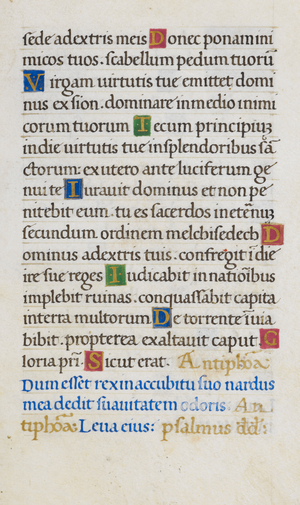 sede adextris meis Donec ponam ini
micos tuos. scabellum pedum tuorũ
Virgam uirtutis tue emittet domi
nus ex sion. dominare in medio inimi
corum tuorum Tecum principiuʒ
in die uirtutis tue in splendoribus sã
ctorum: ex utero ante luciferum ge
nui te Iurauit dominus et non pe
nitebit eum. tu es sacerdos in eternuʒ
secundum ordinem melchisedech D
ominus adextris tuis. confregit ĩ die
ire sue reges Iudicabit in natiõibus
implebit ruinas. conquassãbit capita
in terra multorum De torrente ĩ uia
bibit. propterea exaltauit caput. G
loria pr̃i. Sicut erat. Antiphõa:
Dum esset rex in accubitu suo nardus
mea dedit suauitatem odoris. An
tiphõa: Leua eius: psalmus dd: